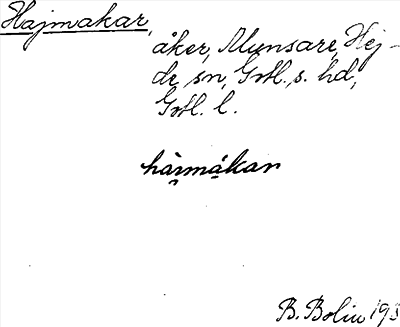 Hajmakar,
åker, Munsare, Hej-
de sn, Gotl. s. hd,
Gotl. l.
B. Bolin 193